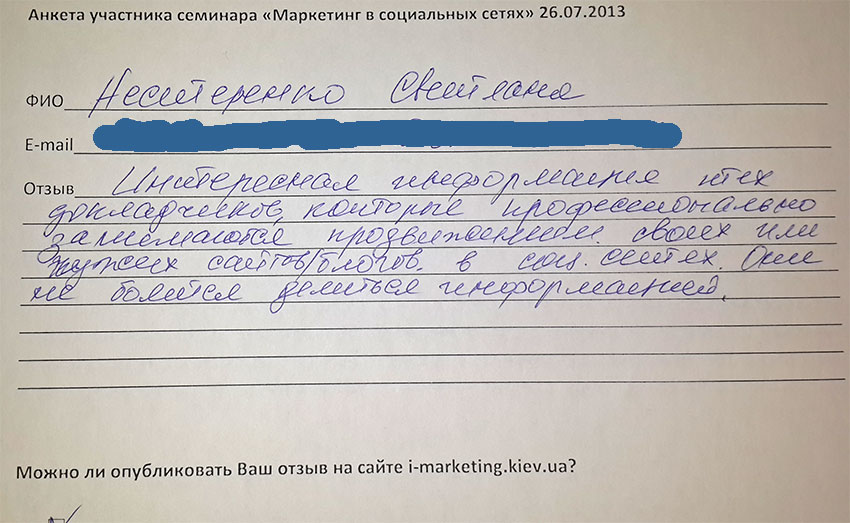 Анкета участника семинара «Маркетинг в социальных сетях» 26.07.2013
ФИО Нестеренко Светлана
E-mail
Отзыв Интересная информация тех
докладчиков, которые профессионально
занимаются продвижением своих или
чужих сайтов/блогов в соц. сетях. Они
не боятся делиться информацией.
Можно ли опубликовать Ваш отзыв на сайте i-marketing.kiev.ua?